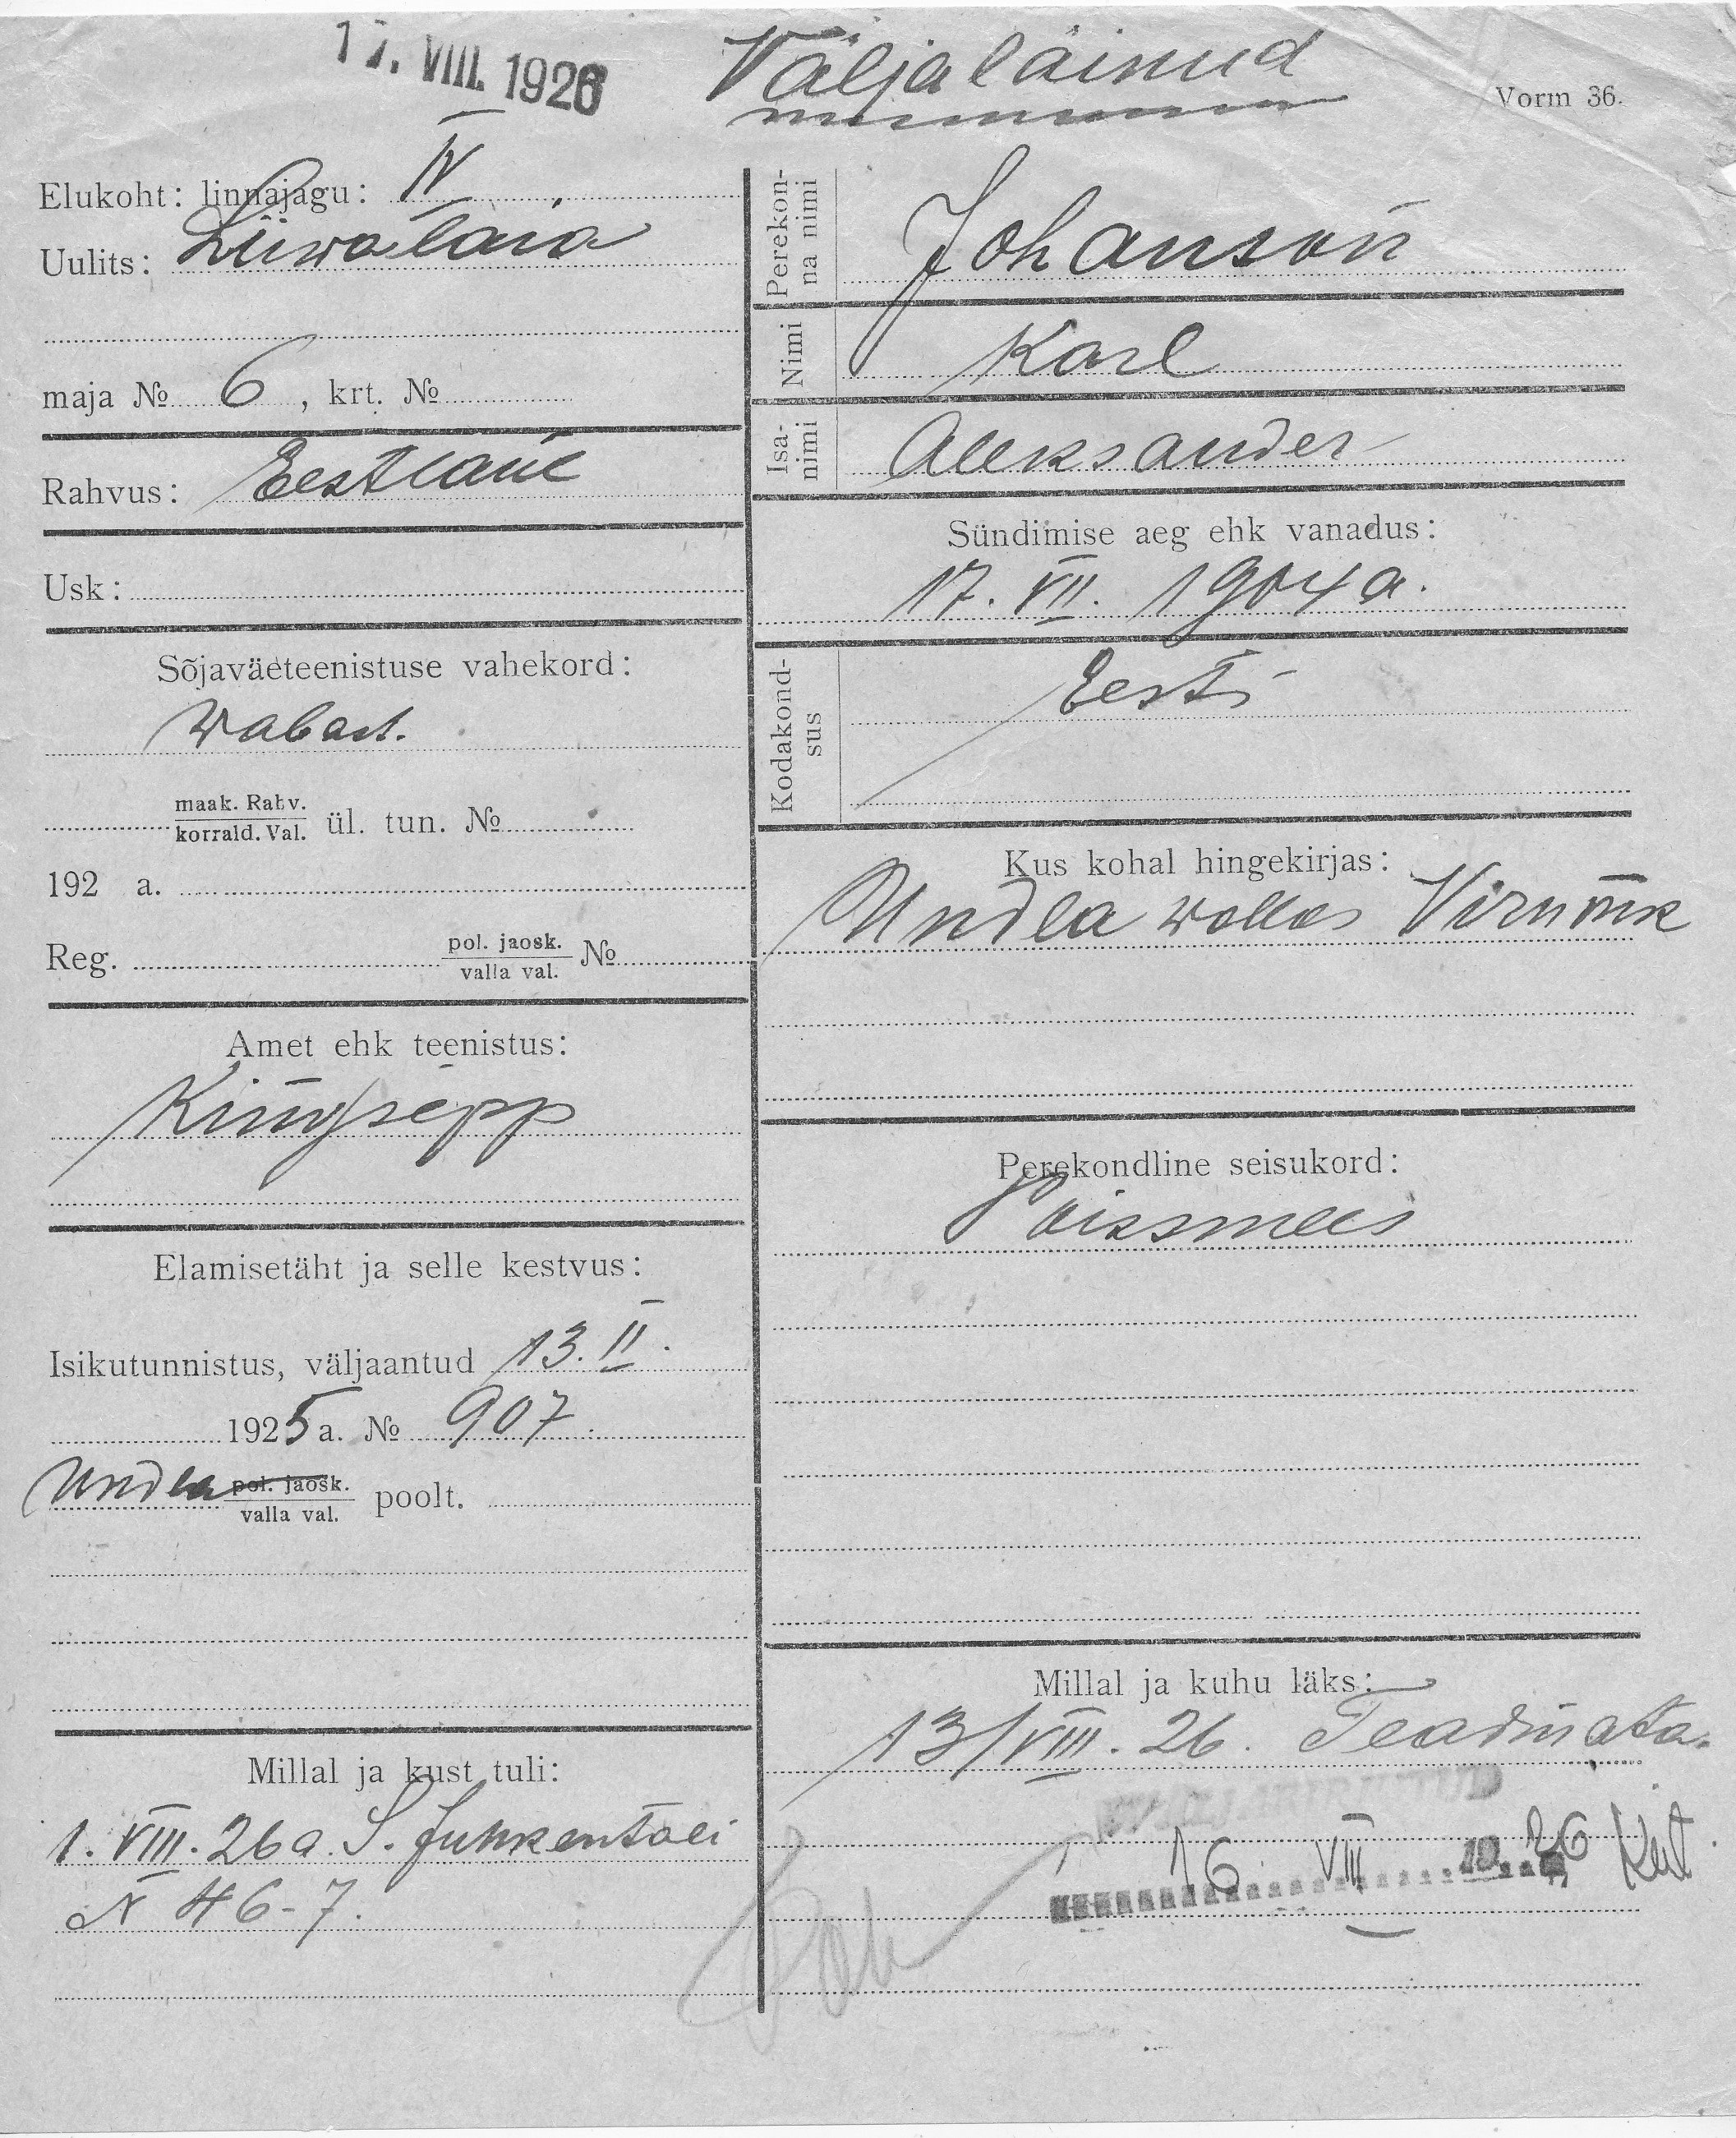 17. VIII. 1926
Väljaläinud
Vorm 36.
Elukoht: linnajagu: IV
Uulits: Liiwalaia
maja № 6, krt. №
Rahvus: Eestlane
Usk:
Sõjaväeteenistuse vahekord:
Wabast.
maak. Rahv.
korrald. Val. ül. tun. №
192 a.
Reg. pol. jaosk.
valla val. №
Amet ehk teenistus:
Kingsepp
Elamisetäht ja selle kestvus:
Isikutunnistus, väljaantud 13. II.
1925 a. № 907
Undla pol. jaosk.
valla val. poolt.
Millal ja kust tuli:
1. VIII. 26 a. S. Juhkentali
N 46-7.
Perekon-
na nimi Johanson
Nimi Karl
Isa-
nimi Aleksander
Sündimise aeg ehk vanadus:
17. VII. 1904 a.
Kodakond-
sus Eesti
Kus kohal hingekirjas:
Undla wallas Virumk
Perekondline seisukord:
Poissmees
Millal ja kuhu läks:
13/VIII. 26. Teadmata.
VÄLJAKIRJUTUD
16 VIII 19 26